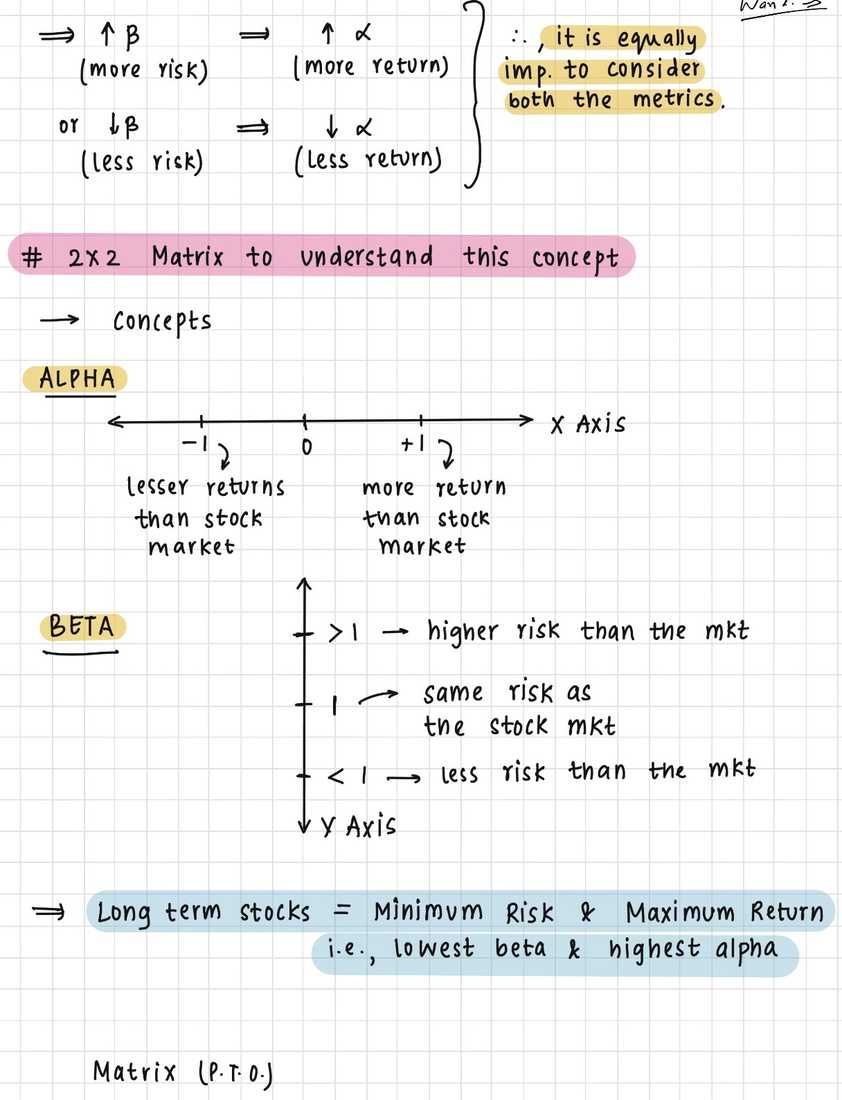 ⟹ ↑ β ⟹ ↑ α
(more risk) (more return)
or ↓ β ⟹ ↓ α
(less risk) (less return)
∴ , it is equally
imp. to consider
both the metrics.
# 2x2 Matrix to understand this concept
→ Concepts
ALPHA
X Axis
-1 0 +1
lesser returns
than stock
market
more return
than stock
market
BETA
>1 → higher risk than the mkt
1 → same risk as
the stock mkt
< 1 → less risk than the mkt
Y Axis
⟹ Long term stocks = Minimum Risk & Maximum Return
i.e., lowest beta & highest alpha
Matrix (P.T.O.)